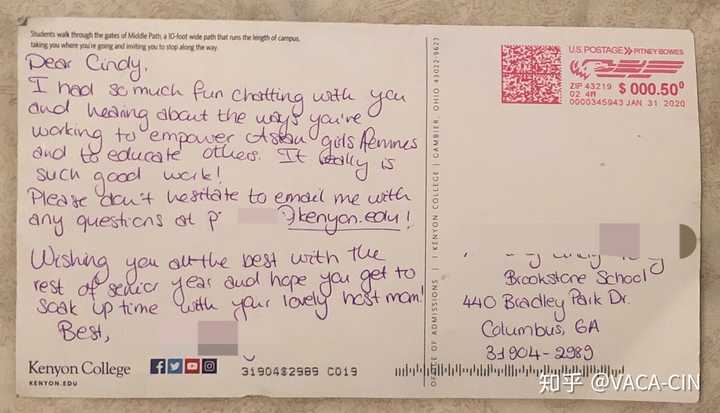 Students walk through the gates of Middle Path, a 10-foot wide path that runs the length of campus,
taking you where you're going and inviting you to stop along the way.
Dear Cindy,
I had so much fun chatting with you
and hearing about the ways you're
working to empower Asian girls femmes
and to educate others. It really is
such good work!
Please don't hesitate to email me with
any questions at p @kenyon.edu!
Wishing you all the best with the
rest of senior year and hope you get to
soak up time with your lovely host mom!
Best,
Kenyon College
KENYON.EDU
31904$2989 C019
OFFICE OF ADMISSIONS | KENYON COLLEGE | GAMBIER, OHIO 43022-9623
U.S. POSTAGE PITNEY BOWES
ZIP 43219 $ 000.50⁰
02 4W
0000345943 JAN 31 2020
Brookstone School
440 Bradley Park Dr.
Columbus, GA
31904-2989
知乎 @VACA-CIN